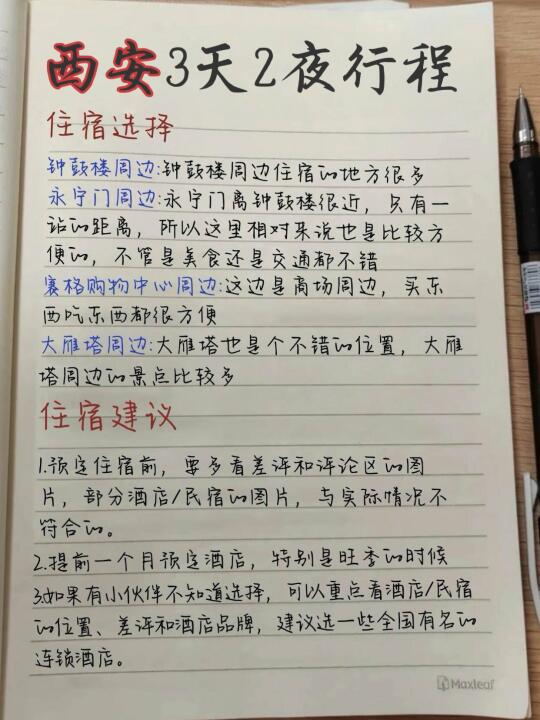 西安3天2夜行程
住宿选择
钟鼓楼周边:钟鼓楼周边住宿的地方很多
永宁门周边:永宁门离钟鼓楼很近，只有一
站的距离，所以这里相对来说也是比较方
便的，不管是美食还是交通都不错
赛格购物中心周边:这边是商场周边，买东
西吃东西都很方便
大雁塔周边:大雁塔也是个不错的位置，大雁
塔周边的景点比较多
住宿建议
1.预定住宿前，要多看差评和评论区的图
片，部分酒店/民宿的图片，与实际情况不
符合的。
2.提前一个月预定酒店，特别是旺季的时候
3.如果有小伙伴不知道选择，可以重点看酒店/民宿
的位置、差评和酒店品牌，建议选一些全国有名的
连锁酒店。
Maxleaf